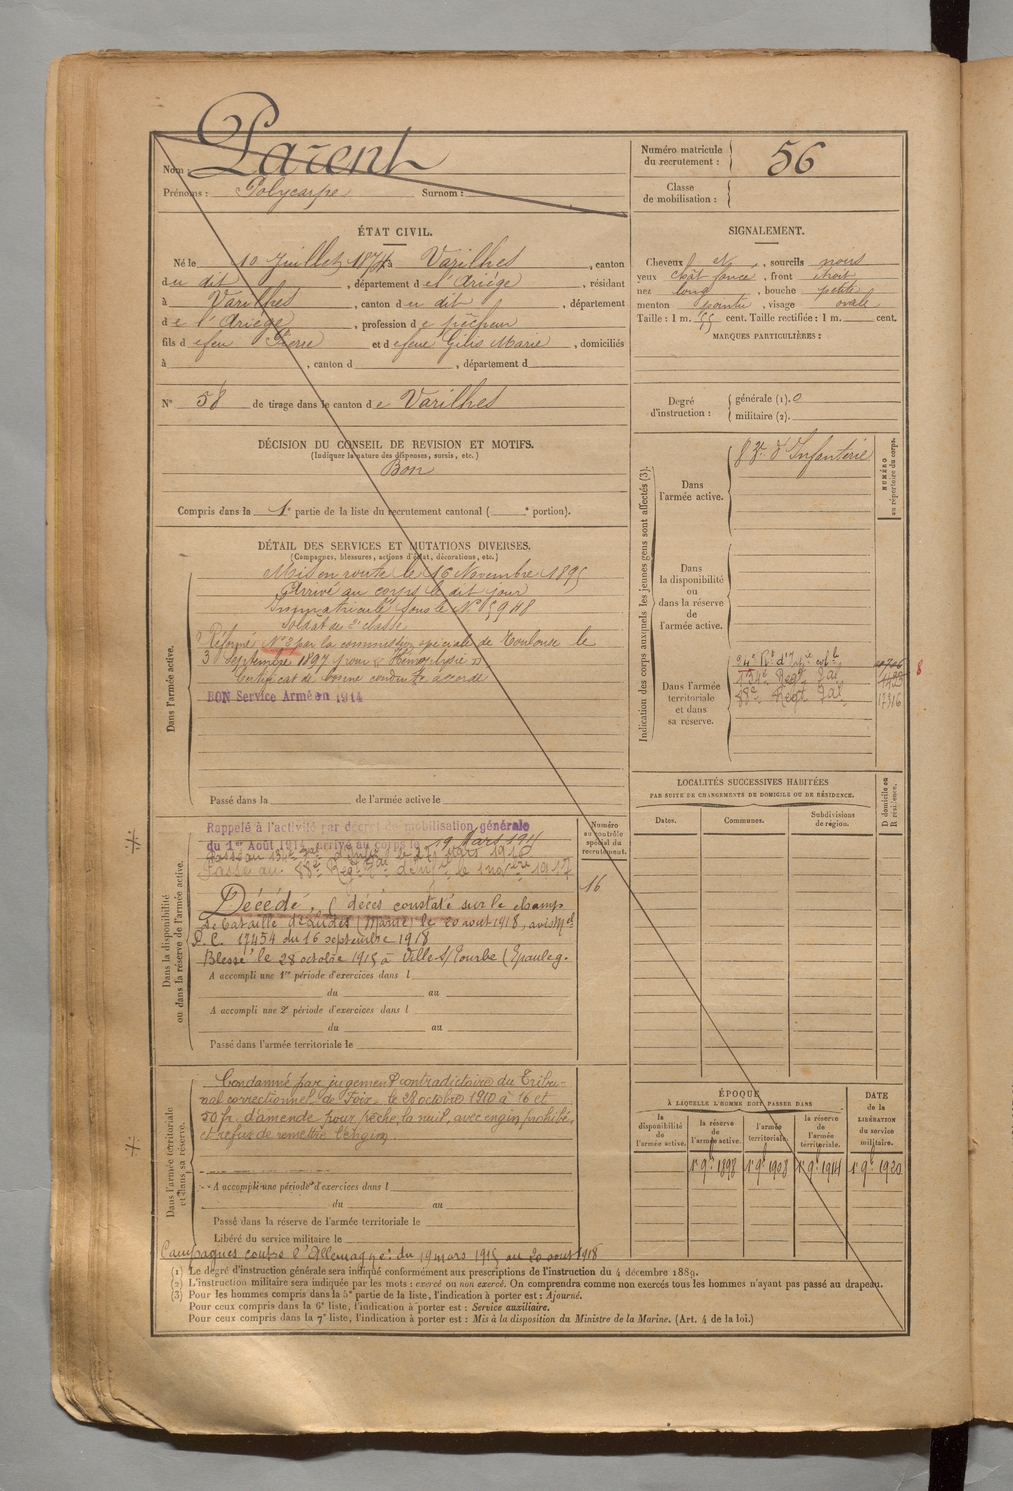 Nom : Parent
Prénoms : Polycarpe Surnom :
Numéro matricule du recrutement : 56
Classe de mobilisation :
ÉTAT CIVIL.
Né le 10 Juillet 1874 à Varilhes, canton
du dit, département de l'Ariège, résidant
à Varilhes, canton du dit, département
de l'Ariège, profession de pêcheur
fils d feu Pierre et d feue Gilis Marie, domiciliés
à , canton d , département d
N° 58 de tirage dans le canton de Varilhes
DÉCISION DU CONSEIL DE REVISION ET MOTIFS.
(Indiquer la nature des dispenses, sursis, etc.)
Bon
Compris dans la 1e partie de la liste du recrutement cantonal ( e portion).
SIGNALEMENT.
Cheveux N, sourcils noirs
yeux chât foncé, front étroit
nez long, bouche petite
menton pointu, visage ovale
Taille : 1 m. 55 cent. Taille rectifiée : 1 m. cent.
MARQUES PARTICULIÈRES :
Degré d'instruction : générale (1). 0
militaire (2).
DÉTAIL DES SERVICES ET MUTATIONS DIVERSES.
(Campagnes, blessures, actions d'éclat, décorations, etc.)
Dans l'armée active.
Mis en route le 16 Novembre 1895
Arrivé au corps le dit jour
Immatriculé sous le N° 5948
Soldat de 2e classe
Réformé N° 2 par la commission spéciale de Toulouse le
3 Septembre 1897 pour « Hémoptysie »
Certificat de bonne conduite accordé
BON Service Armé en 1914
Passé dans la de l'armée active le
Indication des corps auxquels les jeunes gens sont affectés (3).
Dans l'armée active.
83e d'Infanterie
NUMÉRO au répertoire du corps.
Dans la disponibilité ou dans la réserve de l'armée active.
Dans l'armée territoriale et dans sa réserve.
24e Rt d'Infie colle
134e Regt Ial
88e Regt Ial 17316
8
LOCALITÉS SUCCESSIVES HABITÉES
PAR SUITE DE CHANGEMENTS DE DOMICILE OU DE RÉSIDENCE.
Dates. Communes. Subdivisions de région. D domicile ou R résidence.
Dans la disponibilité ou dans la réserve de l'armée active.
Numéro au contrôle spécial du recrutement.
16
Rappelé à l'activité par décret de mobilisation générale
du 1er Août 1914, arrivé au corps le 19 Mars 191
Passé au 134e d'Infie le 27 mars 191
Passé au 88e Regt d'Infie le 1 novbre 1917
Décédé. (décès constaté sur le champ
de bataille de Ludes (Marne) le 20 aout 1918, avis Mel
P.C. 17454 du 16 septembre 1918
Blessé le 28 octobre 1915 à Ville s/ Tourbe (Epauleg.
A accompli une 1re période d'exercices dans l
du au
A accompli une 2e période d'exercices dans l
du au
Passé dans l'armée territoriale le
Dans l'armée territoriale et dans sa réserve.
Condamné par jugement contradictoire du Tribu-
nal correctionnel de Foix le 28 octobre 1910 à 16 et
50 fr. d'amende pour pêche la nuit, avec engin prohibé,
et refus de remettre l'engin.
A accompli une période d'exercices dans l
du au
Passé dans la réserve de l'armée territoriale le
Libéré du service militaire le
Campagnes contre l'Allemagne : du 19 mars 1915 au 20 aout 1918
ÉPOQUE
À LAQUELLE L'HOMME DOIT PASSER DANS
la disponibilité de l'armée active. la réserve de l'armée active. l'armée territoriale. la réserve de l'armée territoriale. DATE de la LIBÉRATION du service militaire.
1er 9bre 1898 1er 9bre 1908 1er 9bre 1914 1er 9bre 1920
(1) Le degré d'instruction générale sera indiqué conformément aux prescriptions de l'instruction du 4 décembre 1889.
(2) L'instruction militaire sera indiquée par les mots : exercé ou non exercé. On comprendra comme non exercés tous les hommes n'ayant pas passé au drapeau.
(3) Pour les hommes compris dans la 5e partie de la liste, l'indication à porter est : Ajourné.
Pour ceux compris dans la 6e liste, l'indication à porter est : Service auxiliaire.
Pour ceux compris dans la 7e liste, l'indication à porter est : Mis à la disposition du Ministre de la Marine. (Art. 4 de la loi.)